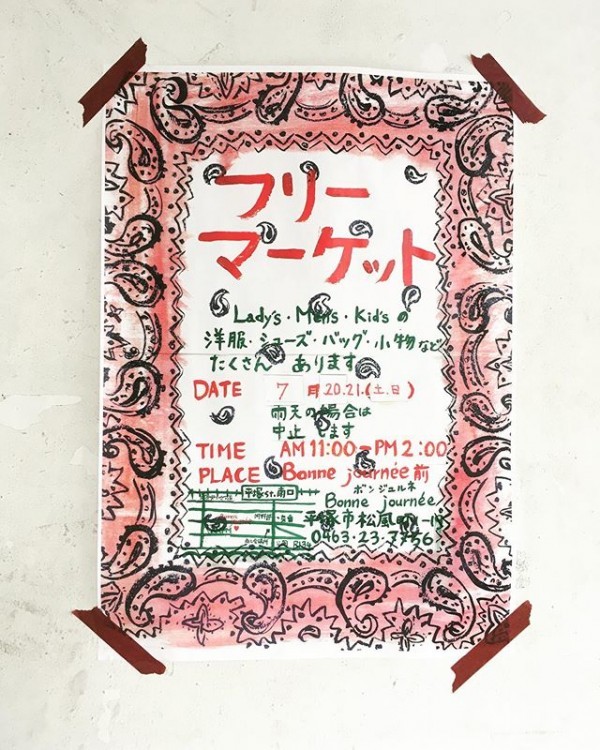 フリー
マーケット
Lady's・Men's・Kid'sの
洋服・シューズ・バッグ・小物など
たくさん あります
DATE 7月20.21.(土.日)
雨天の場合は
中止 します
TIME AM 11:00-PM 2:00
PLACE Bonne journée前
平塚st.南口
ボンジュルネ
Bonne journée
平塚市松風町
0463・23・